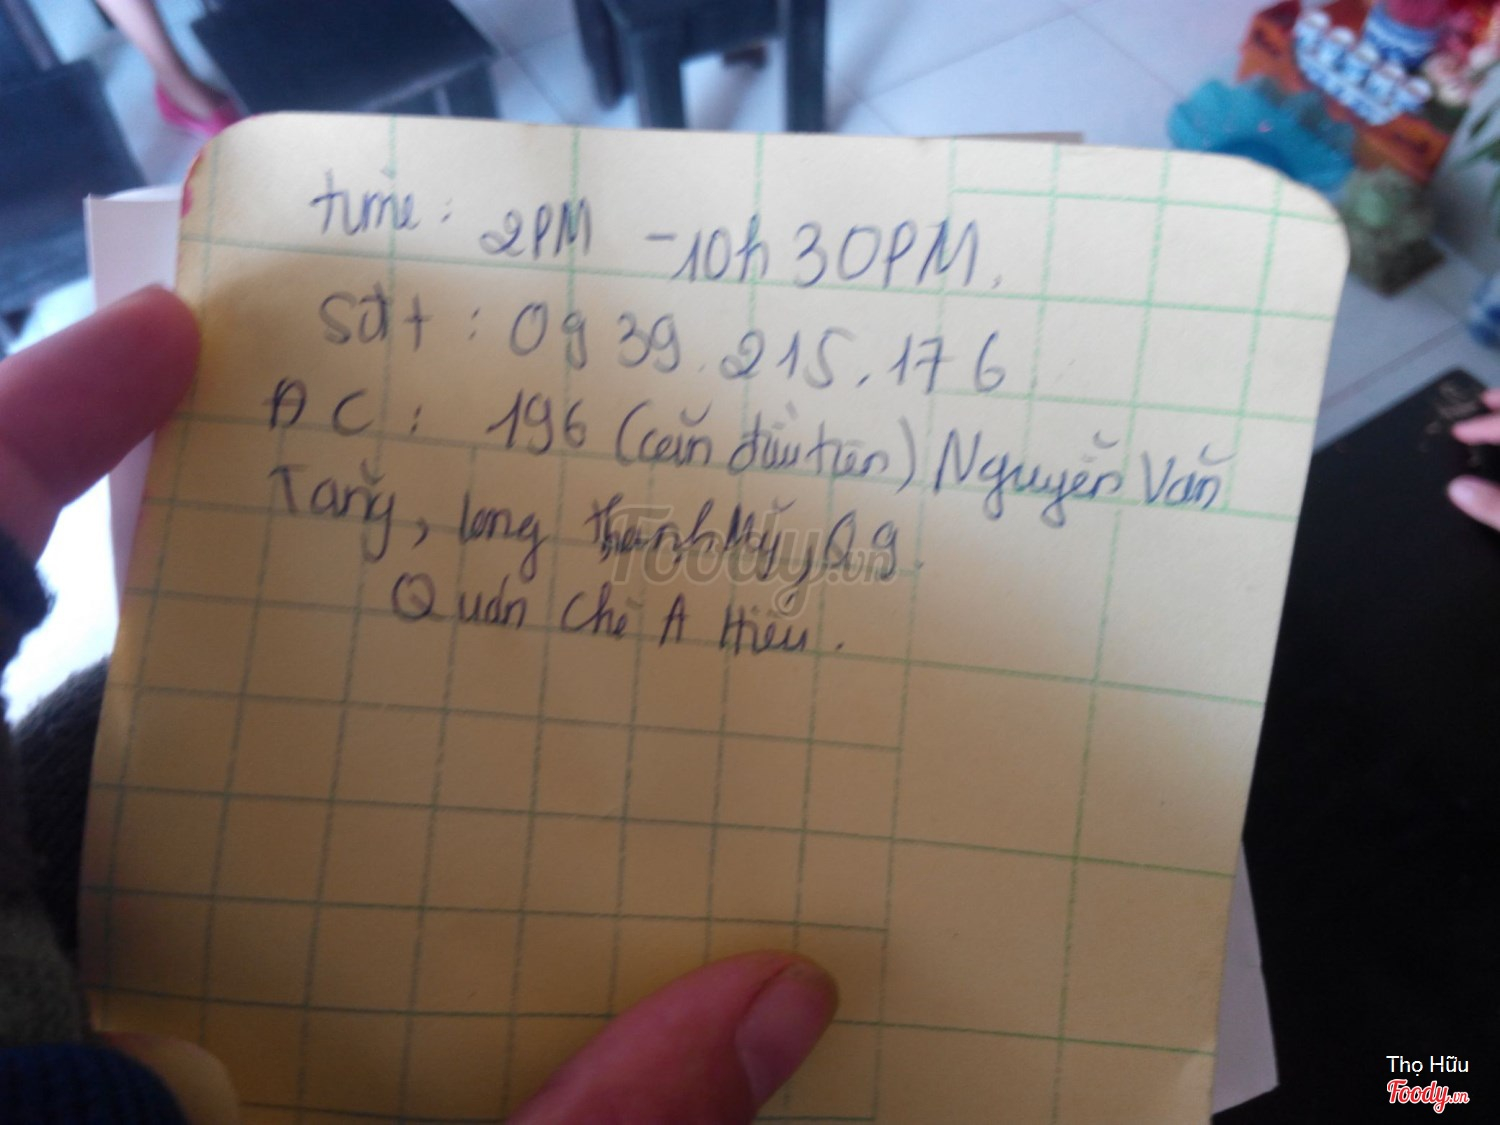 time: 2PM - 10h30PM.
Sđt: 0939.215.176
ĐC: 196 (căn đầu tiên) Nguyễn Văn
Tăng, Long Thạnh Mỹ, Q9.
Quán Chè A Hiếu.
Foody.vn
Thọ Hữu
Foody.vn